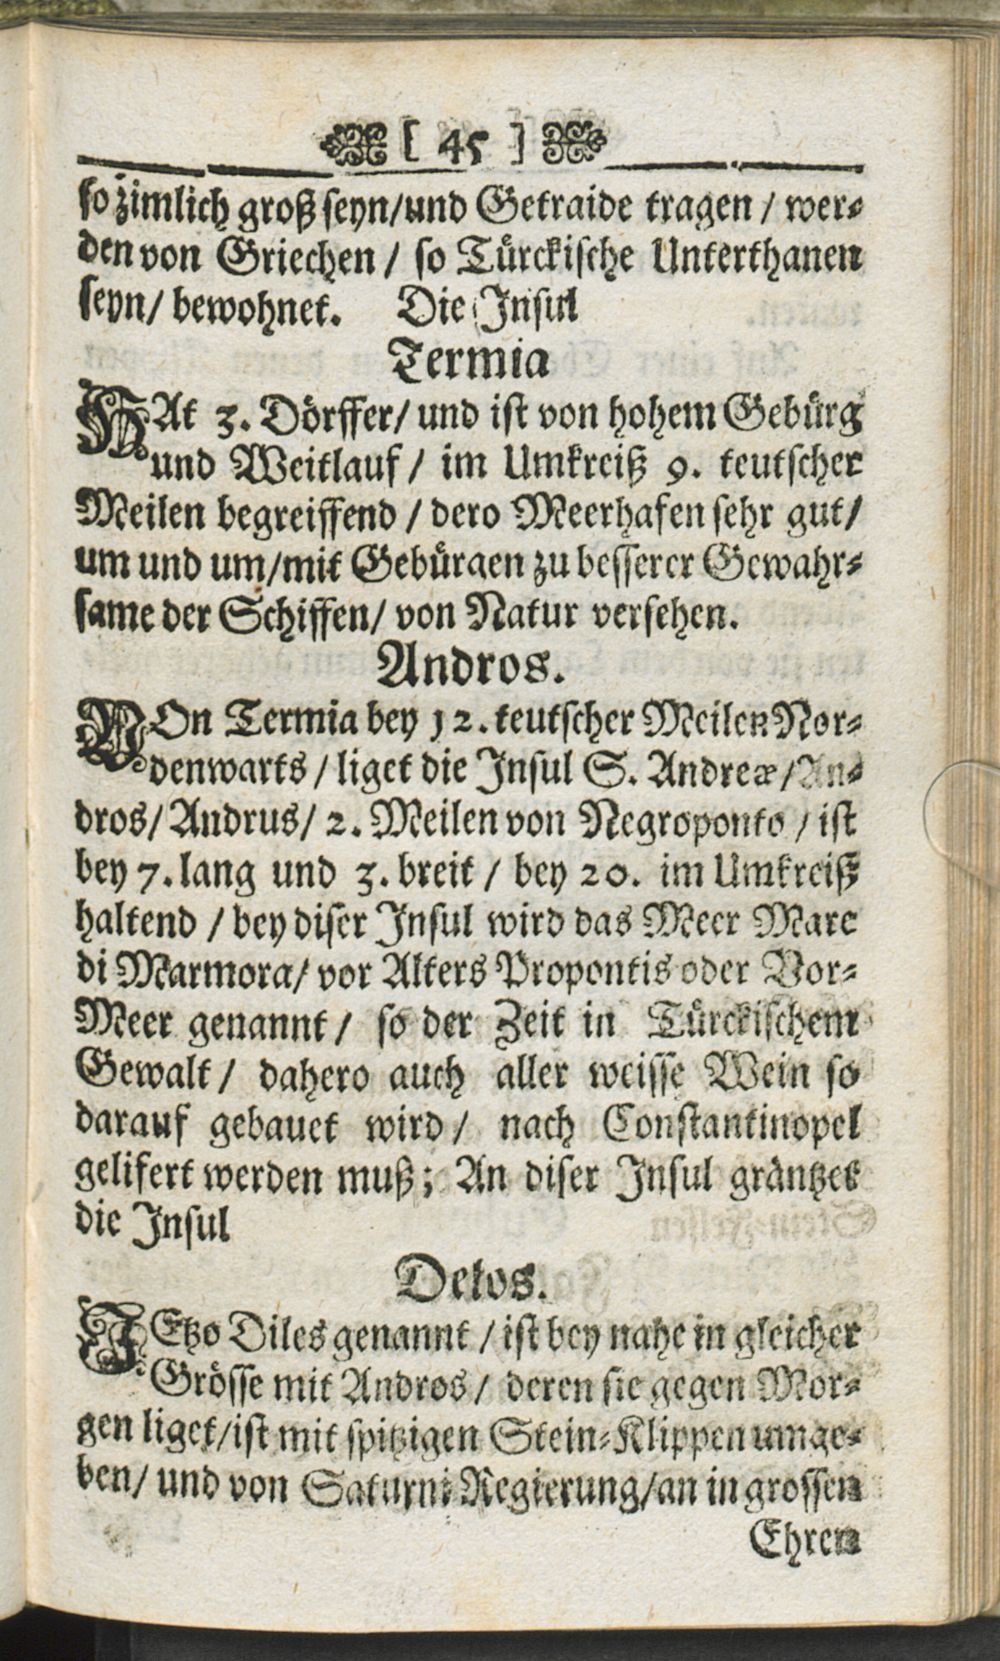 [ 45 ]
so zimlich groß seyn/und Getraide tragen / wer-
den von Griechen / so Türckische Unterthanen
seyn/ bewohnet. Die Insul
Termia
HAt 3. Dörffer/ und ist von hohem Gebürg
und Weitlauf / im Umkreiß 9. teutscher
Meilen begreiffend / dero Meerhafen sehr gut/
um und um/mit Gebürgen zu besserer Gewahr-
same der Schiffen/ von Natur versehen.
Andros.
VOn Termia bey 12. teutscher Meilen Nor-
denwarts / liget die Insul S. Andreæ / An-
dros/ Andrus/ 2. Meilen von Negroponto / ist
bey 7. lang und 3. breit / bey 20. im Umkreiß
haltend / bey diser Insul wird das Meer Mare
di Marmora/ vor Alters Propontis oder Vor-
Meer genannt / so der Zeit in Türckischem
Gewalt / dahero auch aller weisse Wein so
darauf gebauet wird / nach Constantinopel
gelifert werden muß; An diser Insul gräntzet
die Insul
Delos.
JEtzo Diles genannt / ist bey nahe in gleicher
Grösse mit Andros / deren sie gegen Mor-
gen liget/ist mit spitzigen Stein-Klippen umge-
ben/ und von Saturni Regierung/an in grossen
Ehren